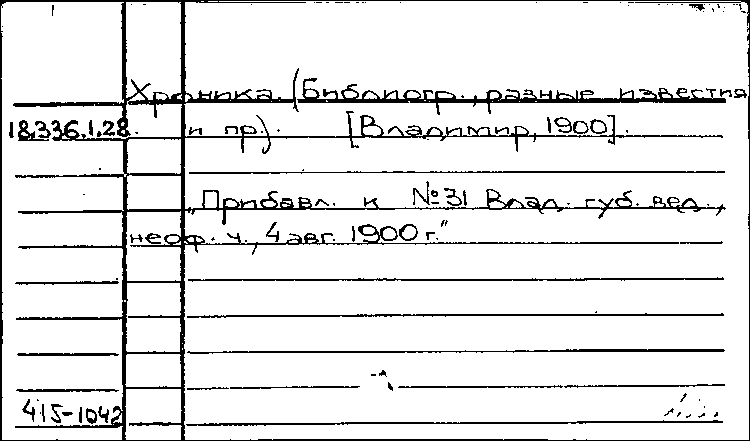 Хроника. (Библиогр., разные известия
18.336.1.28. и пр.). [Владимир, 1900].
„Прибавл. к №31 Влад. губ. вед.,
неоф. ч., 4 авг. 1900 г."
415-1042